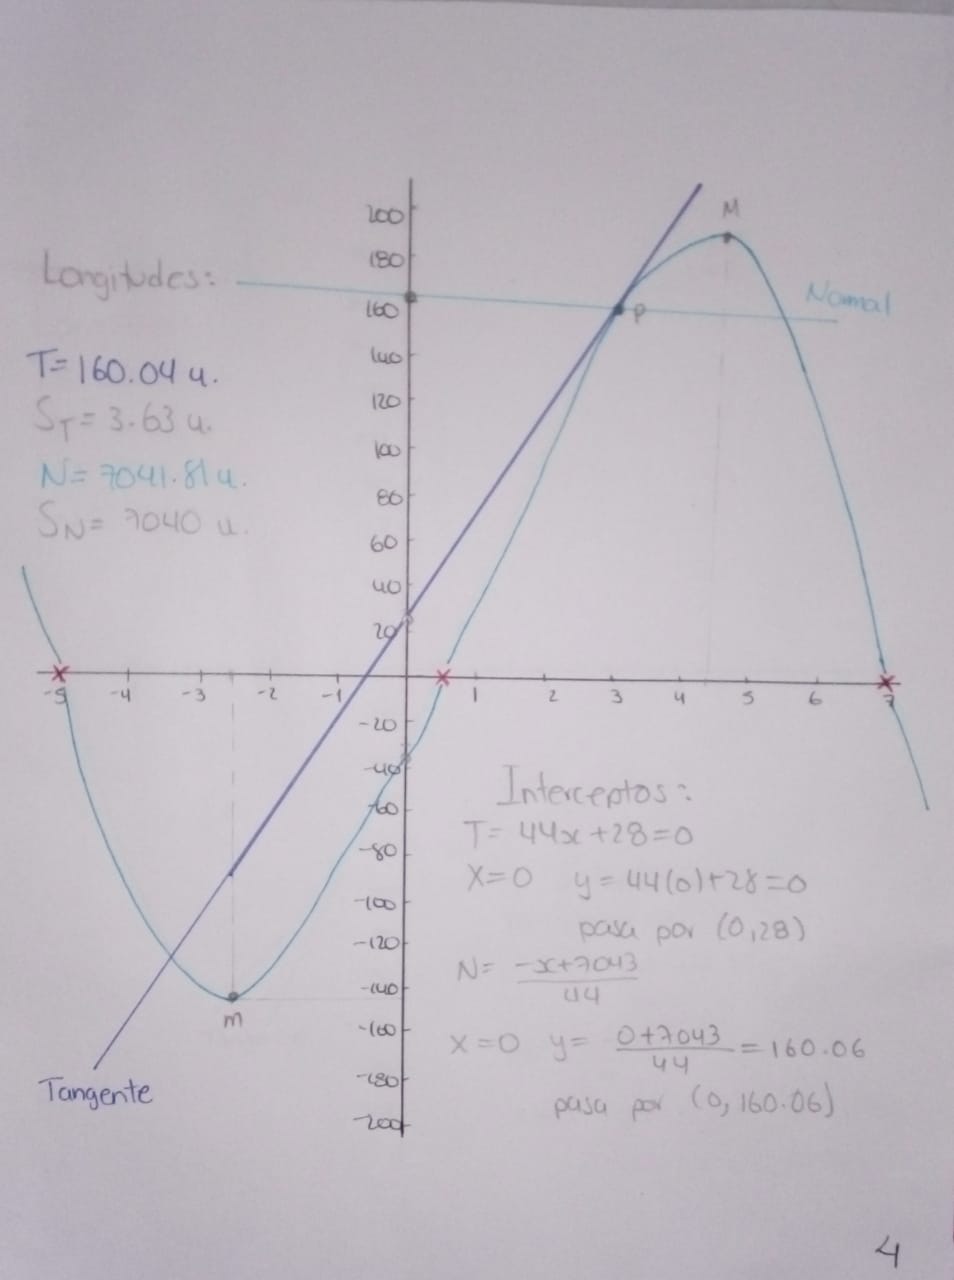 200
M
180
Longitudes:
Normal
160
P
140
T= 160.04 u.
120
S_T= 3.63 u.
100
N= 7041.81 u.
80
S_N= 7040 u.
60
40
20
-5 -4 -3 -2 -1 1 2 3 4 5 6 7
-20
-40
Interceptos:
-60
T= 44x+28=0
-80
X=0 y=44(0)+28=0
-100
pasa por (0,28)
-120
N= -x+7043
44
-140
m
-160
X=0 y= 0+7043 = 160.06
44
-180
Tangente
pasa por (0, 160.06)
-200
4